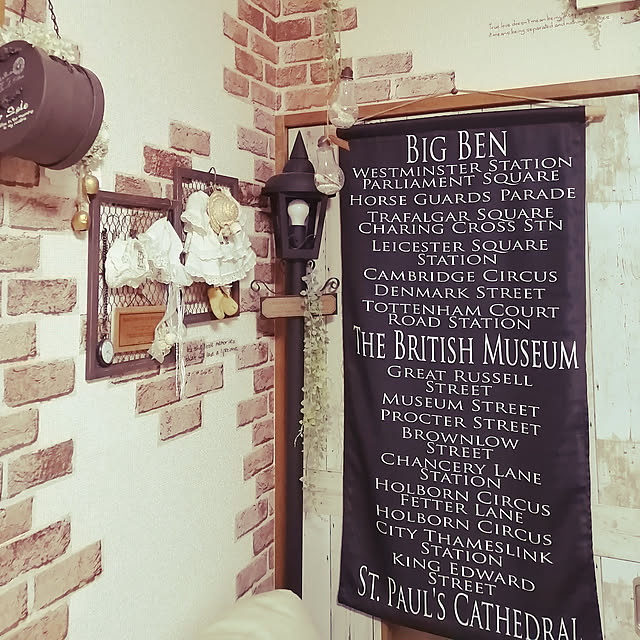 BIG BEN
WESTMINSTER STATION
PARLIAMENT SQUARE
HORSE GUARDS PARADE
TRAFALGAR SQUARE
CHARING CROSS STN
LEICESTER SQUARE
STATION
CAMBRIDGE CIRCUS
DENMARK STREET
TOTTENHAM COURT
ROAD STATION
THE BRITISH MUSEUM
GREAT RUSSELL
STREET
MUSEUM STREET
PROCTER STREET
BROWNLOW
STREET
CHANCERY LANE
STATION
HOLBORN CIRCUS
FETTER LANE
HOLBORN CIRCUS
CITY THAMESLINK
STATION
KING EDWARD
STREET
ST. PAUL'S CATHEDRAL